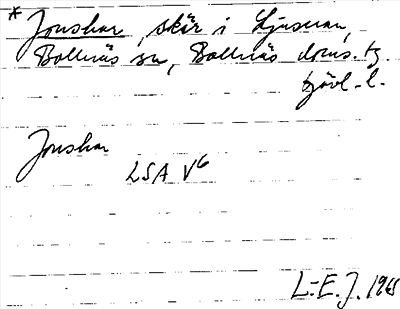 * Jonskar, skär i Ljusnan,
Bollnäs sn, Bollnäs doms. tg.
Gävl. l.
Jonskar
LSA V6
L-E. J. 1965